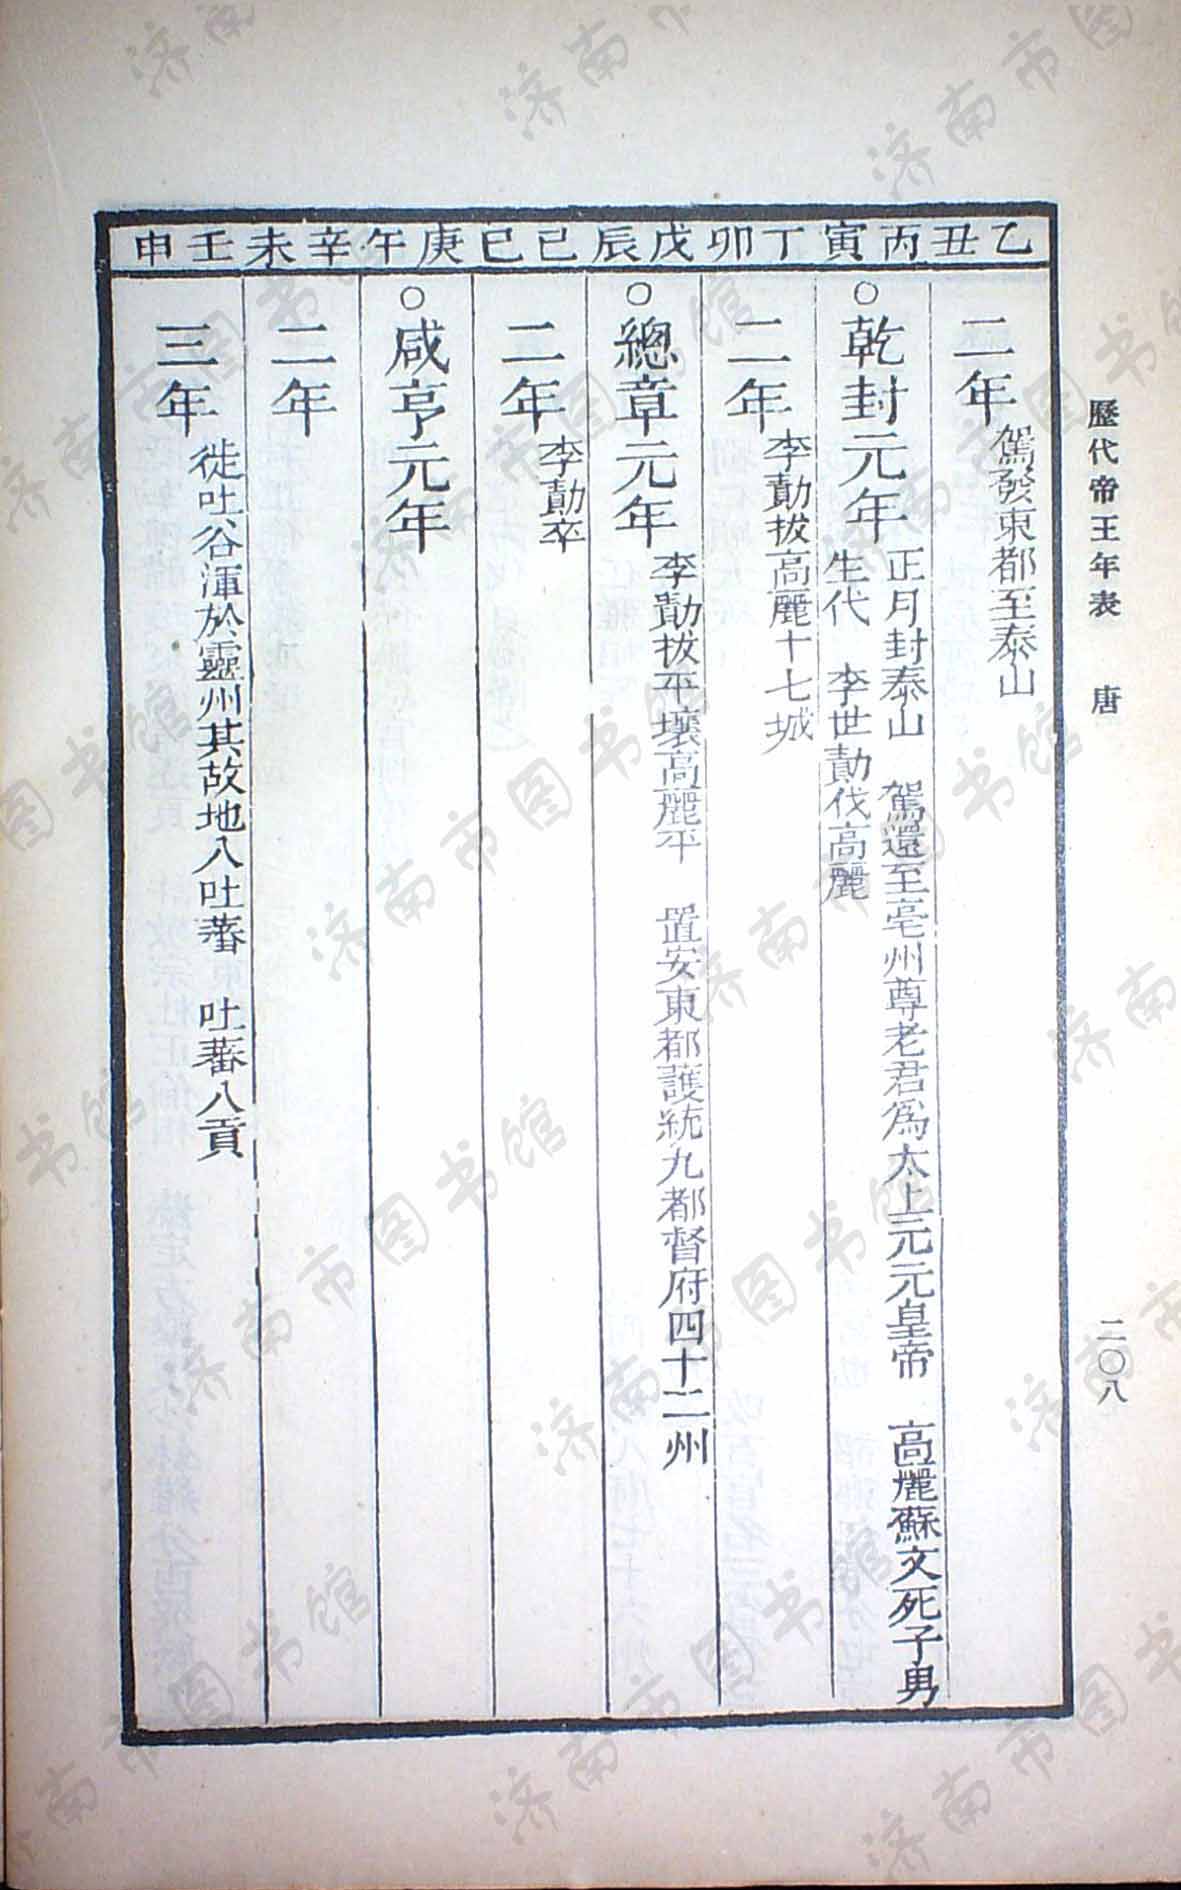 歷代帝王年表 唐
二〇八
乙丑 丙寅 丁卯 戊辰 己巳 庚午 辛未 壬申
二年 駕發東都至泰山
○乾封元年 正月封泰山 駕還至亳州尊老君爲太上元元皇帝 高麗蘇文死子男
生代 李世勣伐高麗
二年 李勣拔高麗十七城
○總章元年 李勣拔平壤高麗平 置安東都護統九都督府四十二州
二年 李勣卒
○咸亨元年
二年
三年 徙吐谷渾於靈州其故地入吐蕃 吐蕃入貢
济南市图书馆